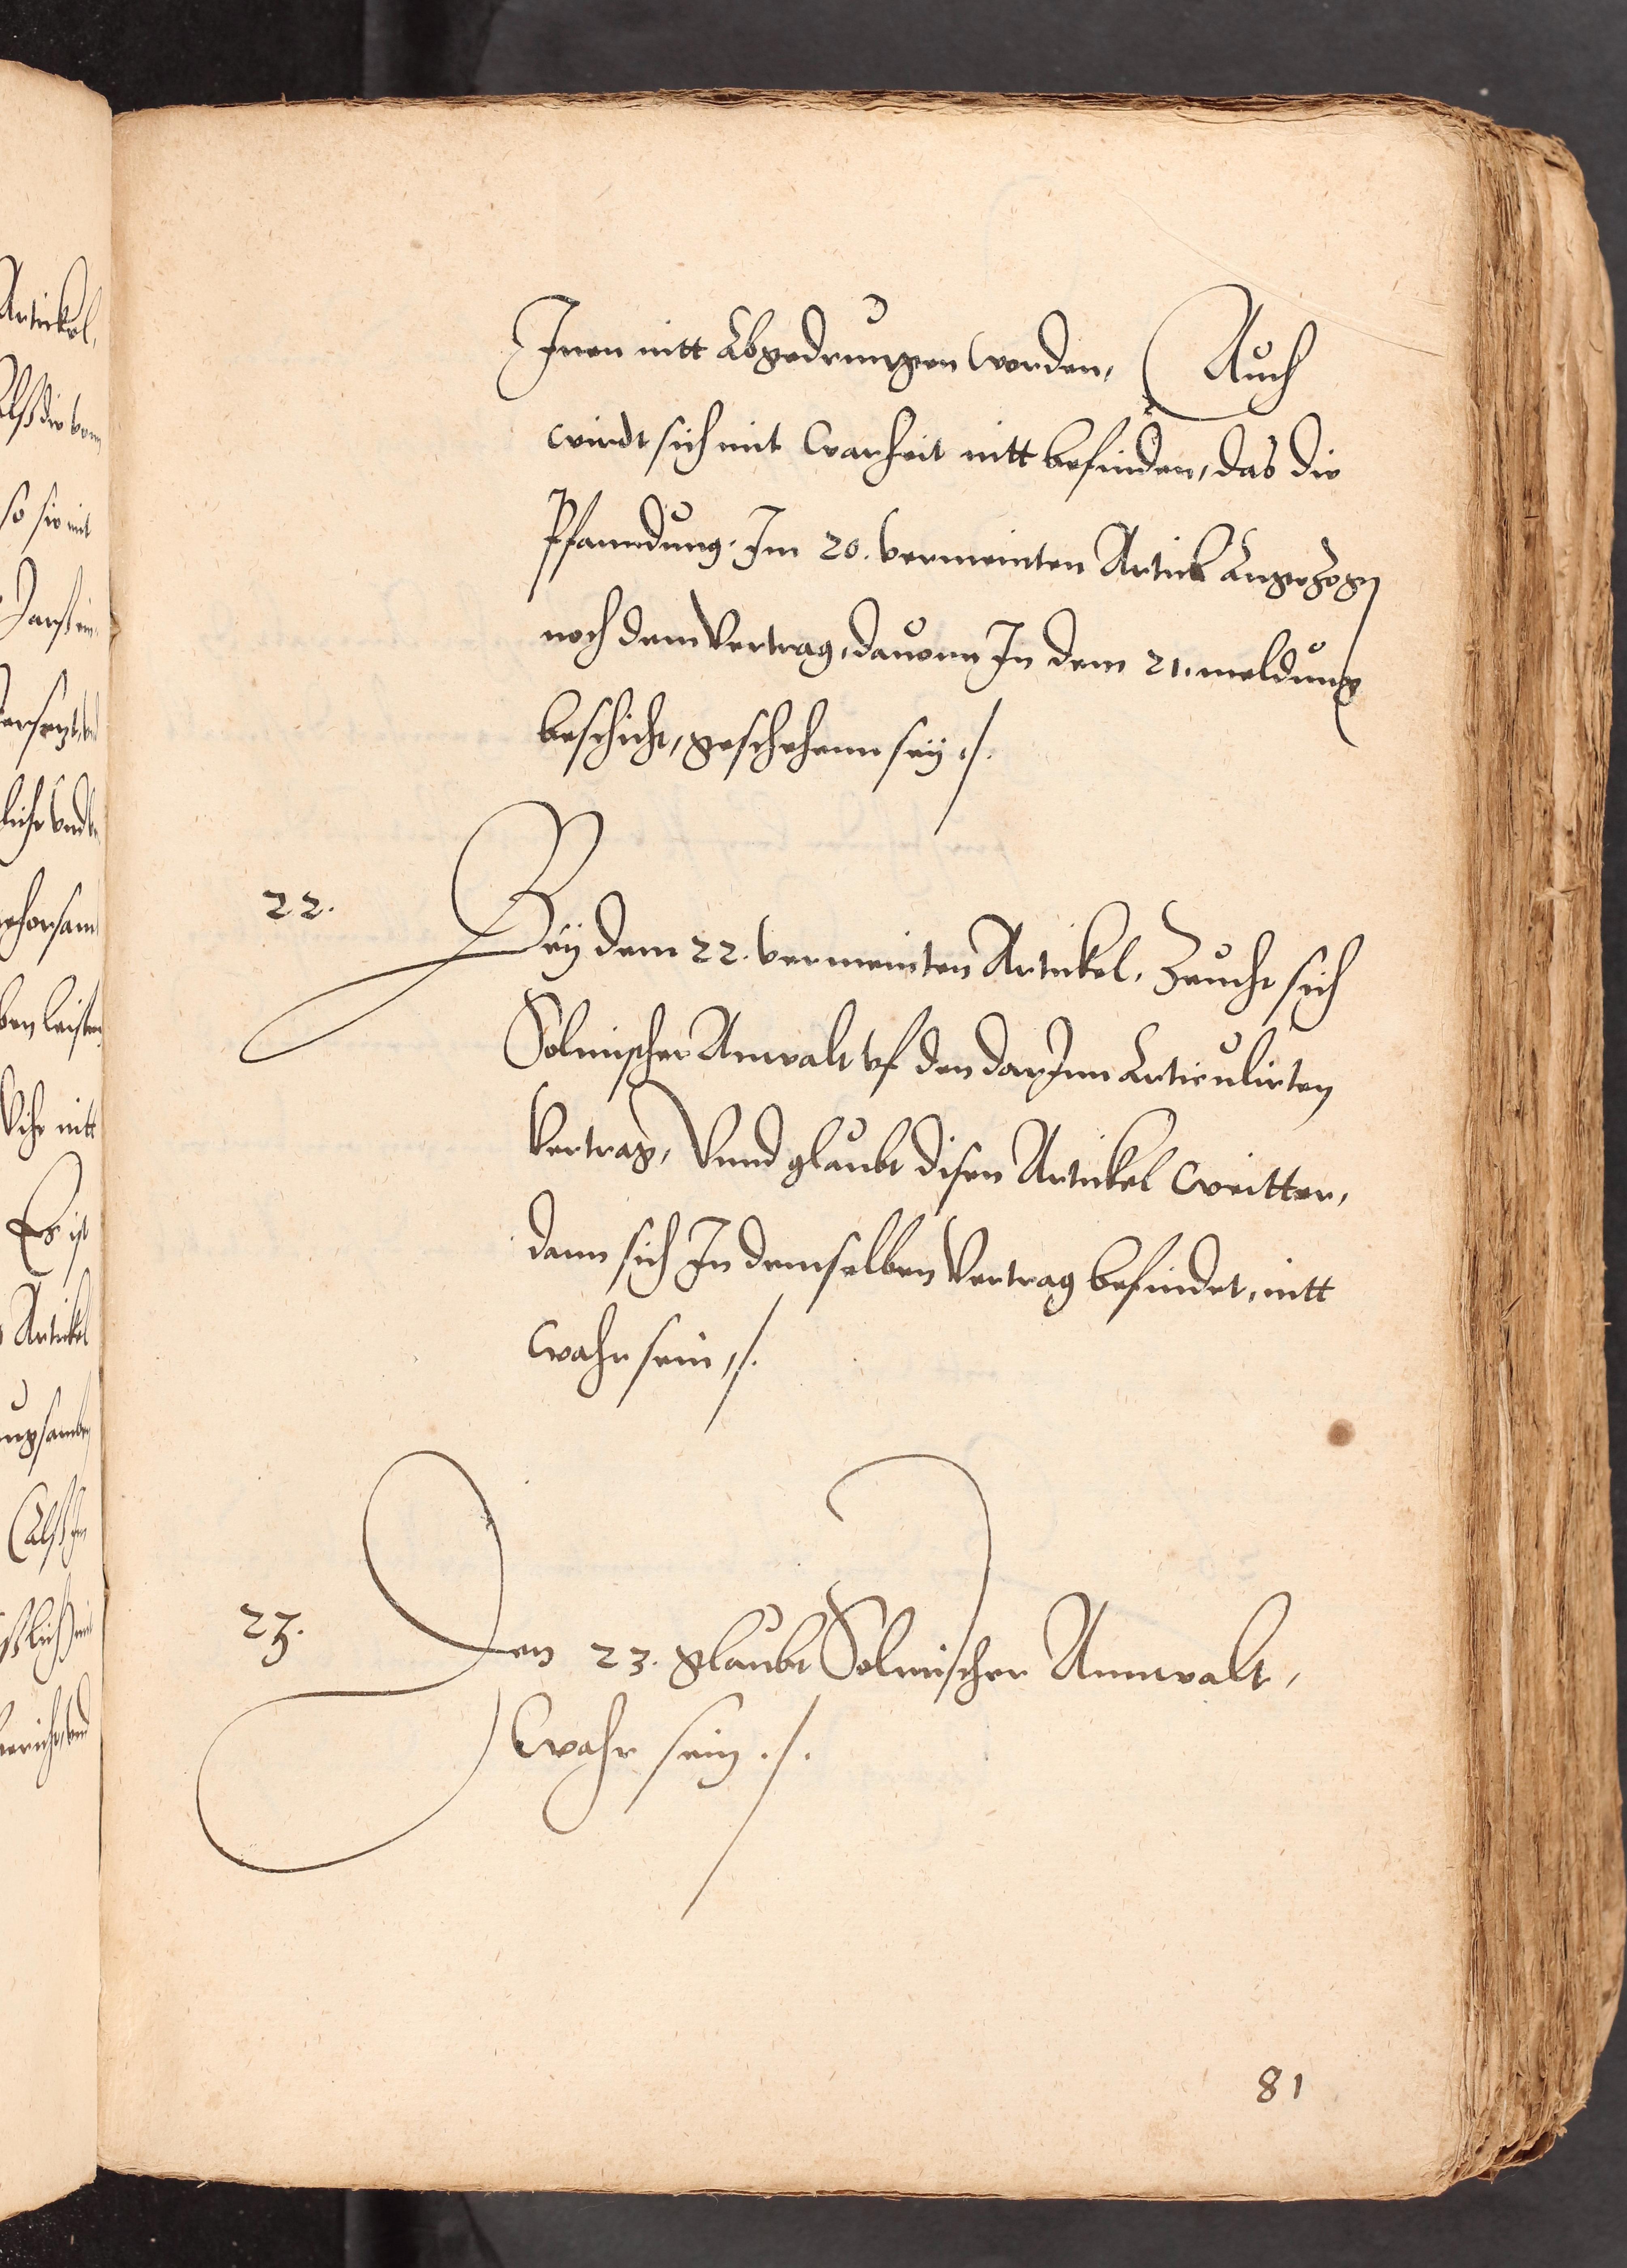 Inen nitt Abgedrungen worden, Auch
wirdt sich mit warheit nitt befinden, das die
Pfanndung. Im 20. vermeinten Artick Angezogen
noch dem Vertrag, dauonn In dem 21. meldung
beschicht, geschehenn sey ./.
22.
Bey dem 22. vermeinten Artickel, Zeucht sich
Solmischer Anwalt vf den darInn Articulirten
Vertrag, Vnnd glaubt disen Artickel weitter,
dann sich In demselben Vertrag befindet, nitt
wahr sein ,/.
23.
Den 23. glaubt Solmischer Annwalt,
wahr sein ./.
81
Artickel,
Alß die
so sie mit
Vihe nitt
Es ist
Artickel